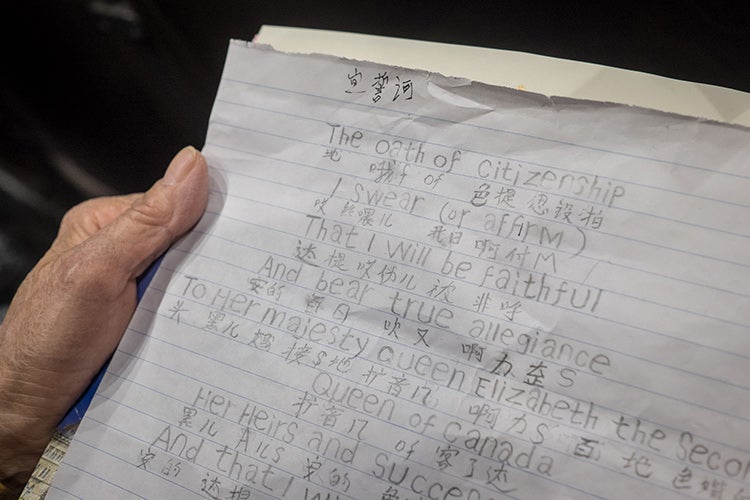 宣誓词
The oath of citizenship
地 哦f of 色提忍设拍
I swear (or affirM)
哎 丝喂儿 我日 啊付M
That I Will be faithful
达提哎伪儿 被 非呼
And bear true allegiance
安的 吹又 啊力歪S
To Her majesty queen Elizabeth the Seco
头 累儿 接S地 扩音几 啊力S 百 地 色
Queen of Canada
扩音几 of 客了达
Her Heirs and Succe
累儿 A儿S 安的
And that I Wi
安的 达提